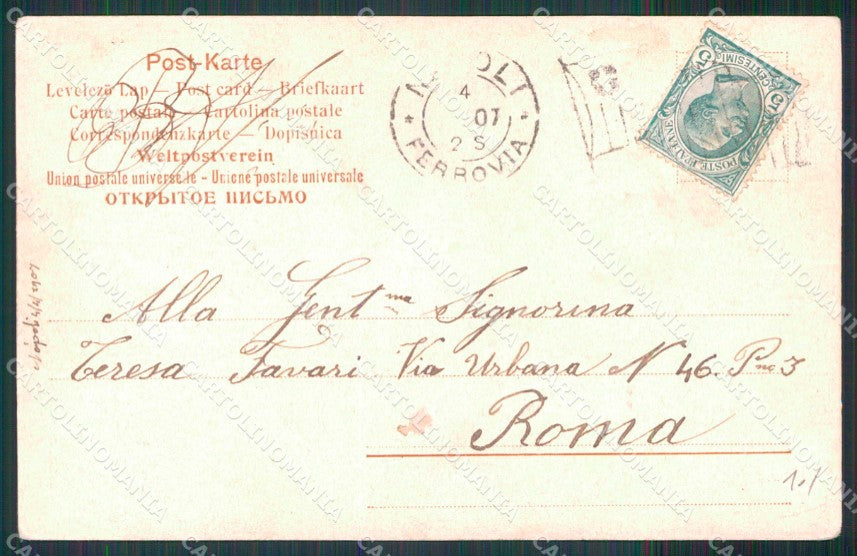 Post-Karte
Levelező Lap — Post card — Briefkaart
Carte postale — Cartolina postale
Correspondenzkarte — Dopisnica
Weltpostverein
Union postale universelle - Unione postale universale
ОТКРЫТОЕ ПИСЬМО
NAPOLI
4
07
2 S
* FERROVIA *
5 CENTESIMI 5
POSTE ITALIANE
Alla Gent.ma Signorina
Teresa Favari Via Urbana N 46. P.no 3
Roma
CARTOLINOMANIA